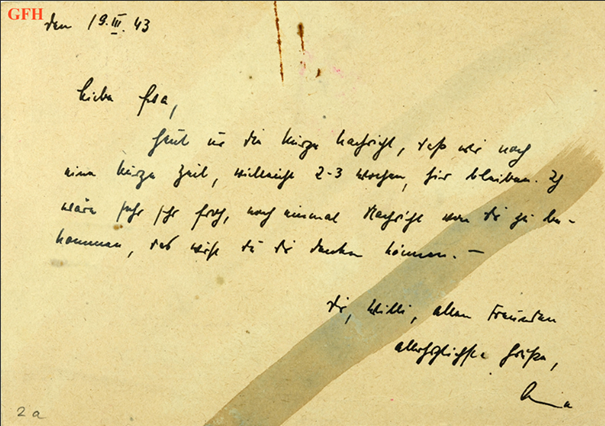 GFH
den 19.III.43
Liebe
Heut nur die kurze Nachricht, daß wir noch
eine kurze Zeit, vielleicht 2-3 Wochen, hier bleiben. Ich
wäre sehr sehr froh, noch einmal Nachricht von dir zu be-
kommen, das wirst du dir denken können. –
Dir, Willi, allen Freunden
allerherzlichste Grüße,
2a